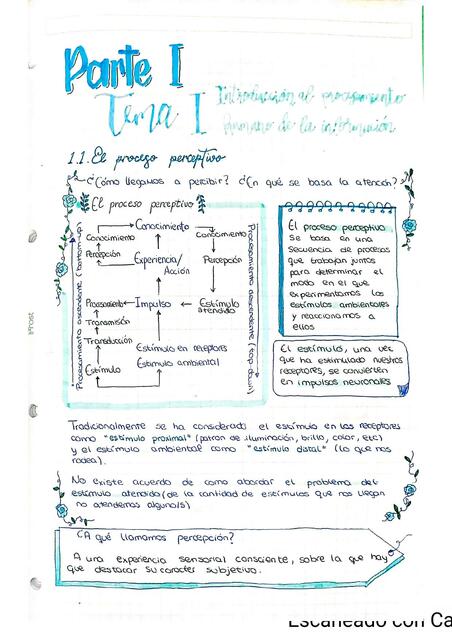 Parte I
Tema I
Introducción al procesamiento
humano de la información
1.1. El proceso perceptivo
¿Cómo llegamos a percibir? ¿En qué se basa la atención?
El proceso perceptivo
Procesamiento ascendente (bottom-up)
Conocimiento
Percepción
Procesamiento
Transmisión
Transducción
Estímulo
Conocimiento
Experiencia/
Acción
Impulso
Estímulo en receptores
Estímulo ambiental
Conocimiento
Percepción
Estímulo
atendido
Procesamiento descendente (top-down)
El proceso perceptivo
se basa en una
secuencia de procesos
que trabajan juntos
para determinar el
modo en el que
experimentamos los
estímulos ambientales
y reaccionamos a
ellos
El estímulo, una vez
que ha estimulado nuestros
receptores, se convierten
en impulsos neuronales
Tradicionalmente se ha considerado el estímulo en los receptores
como "estímulo proximal" (patrón de iluminación, brillo, color, etc)
y el estímulo ambiental como "estímulo distal" (lo que nos
rodea).
No existe acuerdo de como abordar el problema del
estímulo atendido (de la cantidad de estímulos que nos llegan
no atendemos alguno/s)
¿A qué llamamos percepción?
A una experiencia sensorial consciente, sobre la que hay
que destacar su carácter subjetivo.
Escaneado con Ca